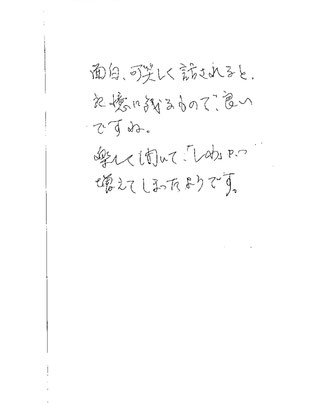 面白、可笑しく話されると、
記憶に残るもので、良い
ですね。
楽しく聞いて、「しわ」が
増えてしまったようです。